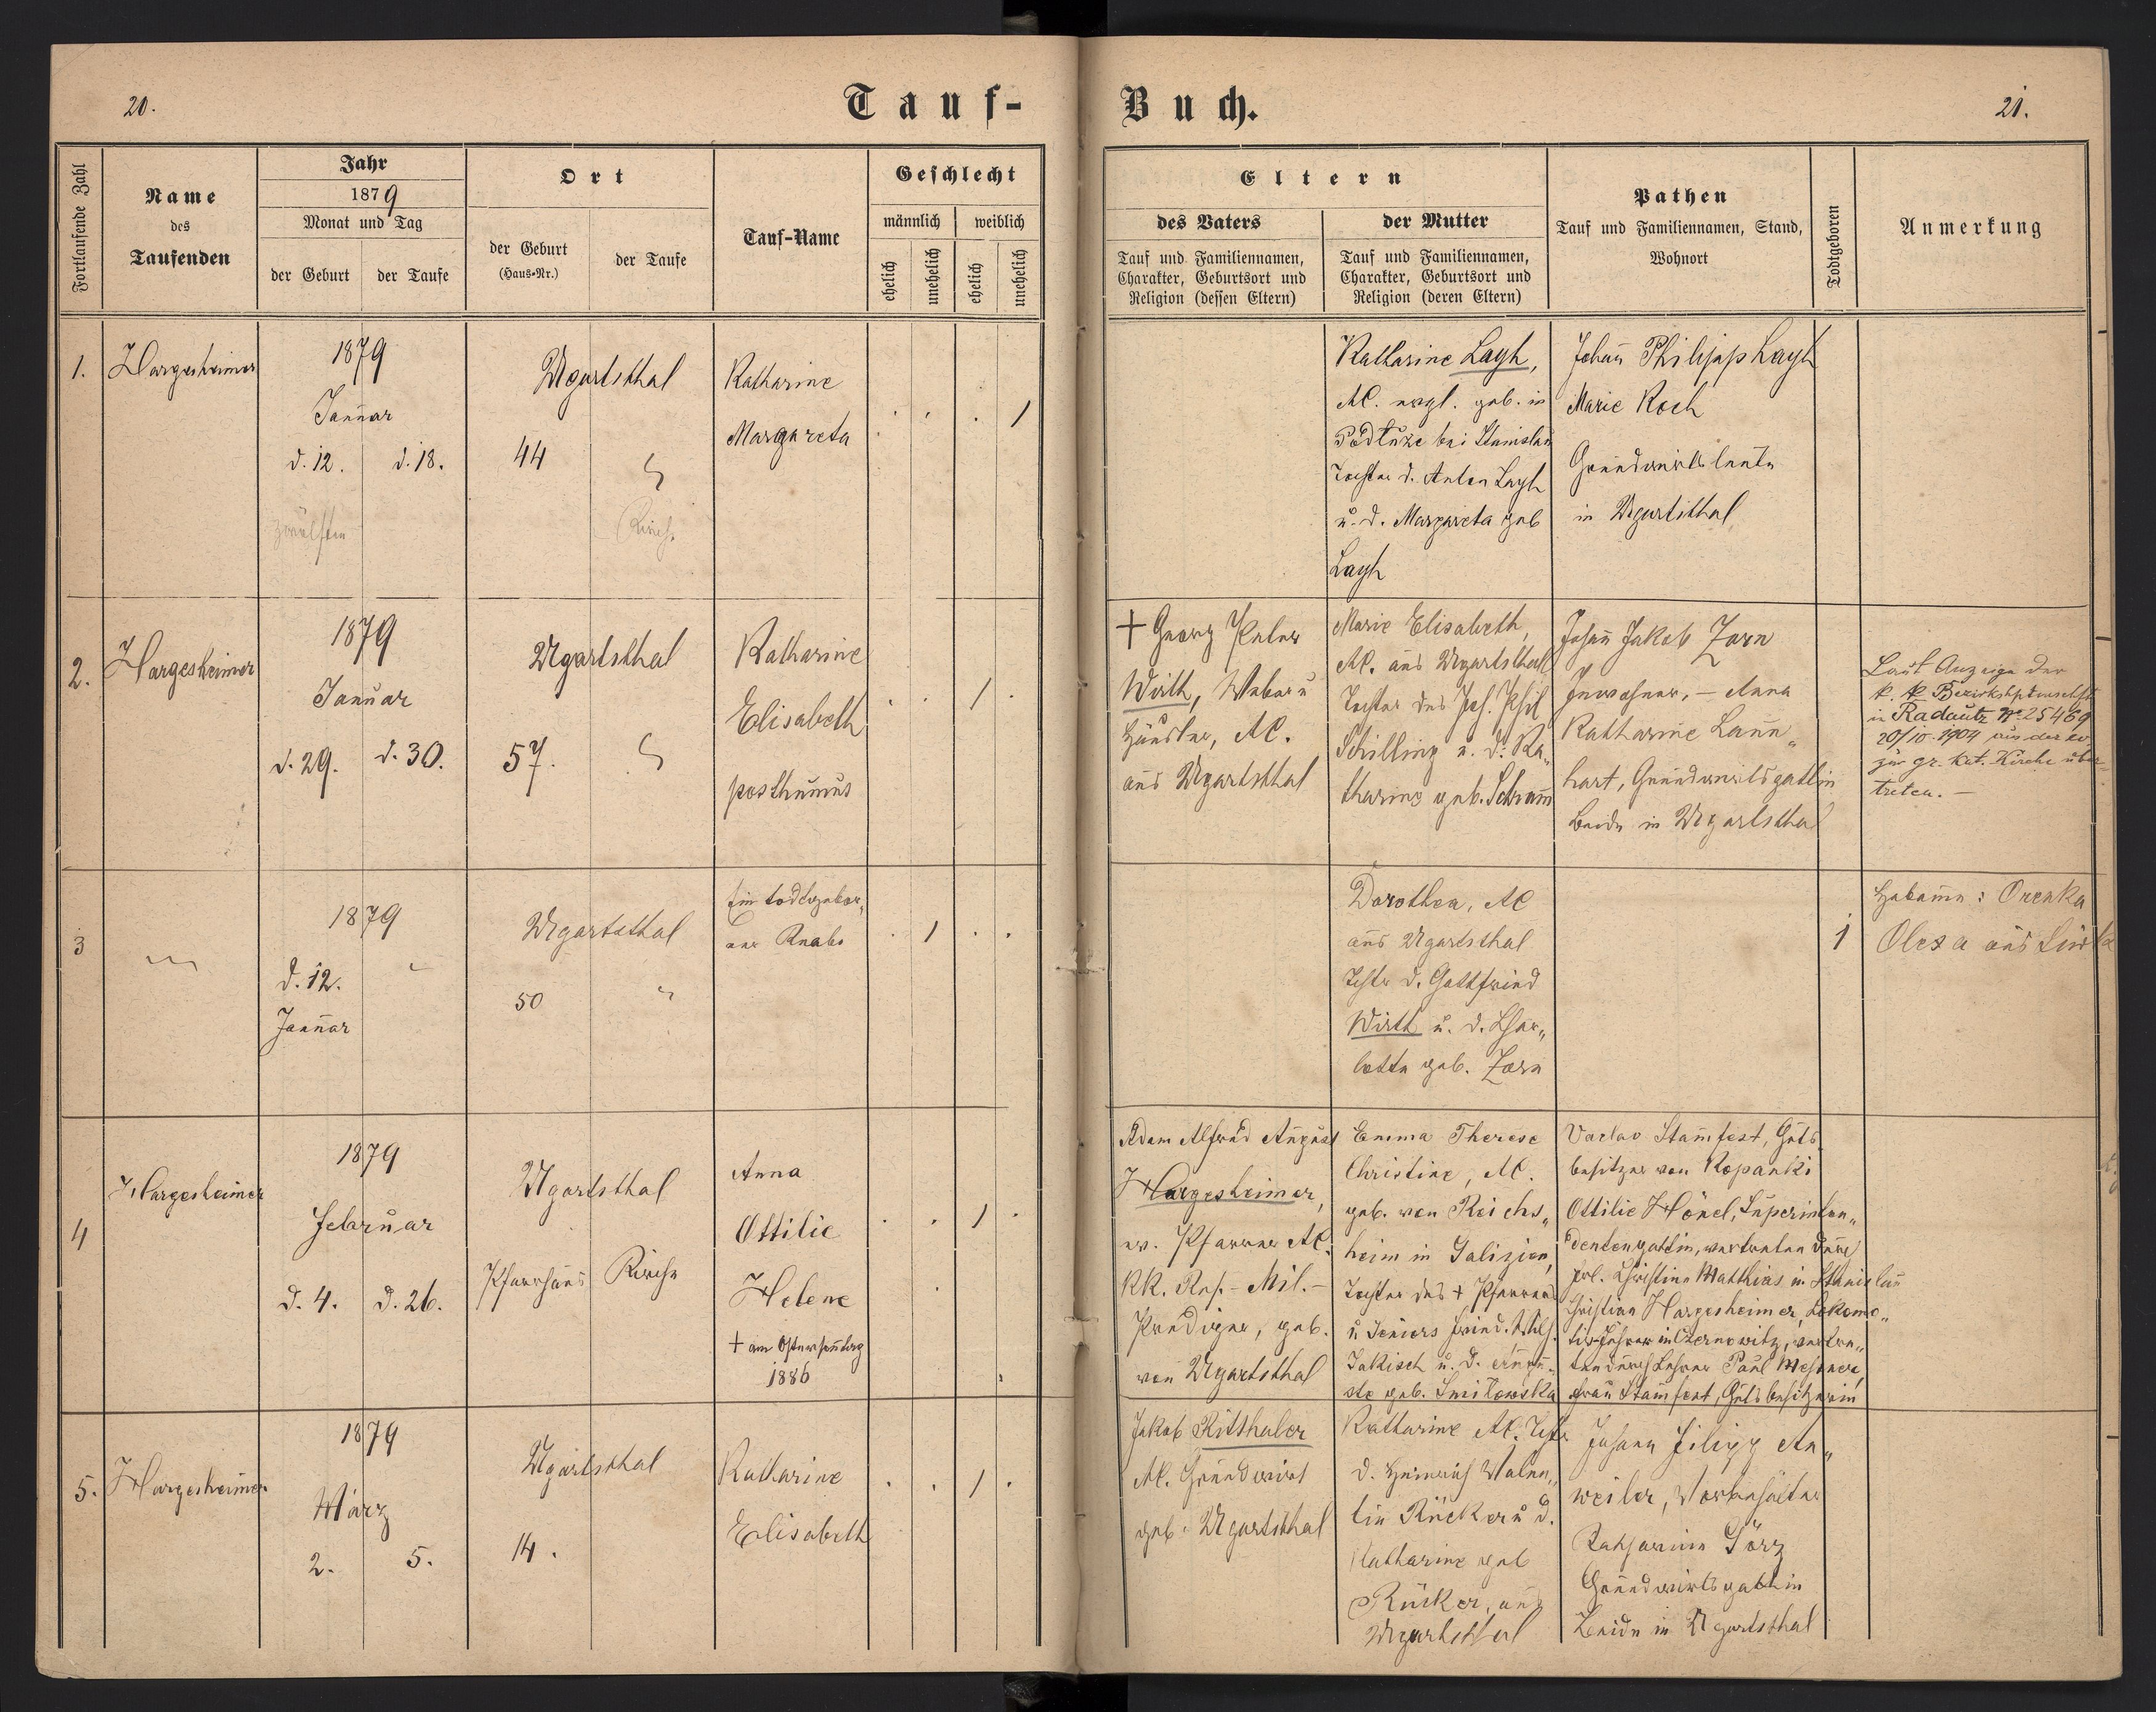 20.
Tauf-
Buch.
21.
Fortlaufende Zahl
Name
des
Taufenden
Jahr
1879
Monat und Tag
der Geburt
der Taufe
Ort
der Geburt
(Haus-Nr.)
der Taufe
Tauf-Name
Geschlecht
männlich
weiblich
ehelich
unehelich
ehelich
unehelich
Eltern
des Vaters
Tauf und Familiennamen,
Charakter, Geburtsort und
Religion (dessen Eltern)
der Mutter
Tauf und Familiennamen,
Charakter, Geburtsort und
Religion (deren Eltern)
Pathen
Tauf und Familiennamen, Stand,
Wohnort
Todtgeboren
Anmerkung
1.
Hargesheimer
1879
Januar
d. 12.
d. 18.
zwölften
Ugartsthal
44
Kirch.
Katharine
Margareta
1
Katharine Layh,
AC. evgl. geb. in
Podłuże bei Stanislau
Tochter d. Anton Layh
u. d. Margareta geb
Layh
Johan̄ Philipp Layh
Marie Koch
Grundwirtsleute
in Ugartsthal
2.
Hargesheimer
1879
Januar
d. 29.
d. 30.
Ugartsthal
57.
Katharine
Elisabeth
posthumus
1
† Georg Peter
Wirth, Weber u
Händler, AC.
aus Ugartsthal
Marie Elisabeth,
AC. aus Ugartsthal
Tochter des Joh. Phil
Schilling u. d. Ka„
tharine geb. Schram̄
Johan̄ Jakob Zorn
Inwohner, – Anna
Katharine Lan̄„
hart, Grundwirtsgattin
Beide in Ugartsthal
Laut Anzeige der
k. k. Bezirkshptmschft
in Radautz No 25469
20/10 1904 aus der ev
zur gr. kat. Kirche über=
treten. –
3
1879
d. 12.
Januar
Ugartsthal
50
Ein todtgebor„
ener Knabe
1
Dorothea, AC
aus Ugartsthal
Tchtr d. Gottfried
Wirth u. d. Char„
lotte geb. Zorn
1
Hebam̄e: Orenka
Olexa aus
4
Hargesheimer
1879
Februar
d. 4.
d. 26.
Ugartsthal
Pfarrhaus
Kirche
Anna
Ottilie
Helene
† am Ostersonntag
1886
1
Adam Alfred August
Hargesheimer,
ev. Pfarrer AC.
KK. Res.-Mil.-
Prediger, geb.
von Ugartsthal
Emma Therese
Christine, AC.
geb. von Reichs„
heim in Galizien,
Tochter des † Pfarrers
u Seniors Fried. Wilh.
Jakisch u. d. Augu„
ste geb. Smilowska
Vaclav Stam̄fest, Guts
besitzer von Kopanki
Ottilie Hönel, Superinten„
dentengattin, vertreten durch
Frl. Christine Matthias in Stanislau
Christian Hargesheimer, Lokomo„
tivführer in Czernowitz, vertre„
ten durch Lehrer Paul
Frau Stam̄fest, Gutsbesitzerin
5.
Hargesheimer
1879
März
2.
5.
Ugartsthal
14.
Katharine
Elisabeth
1
Jakob Ritthaler
AC. Grundwirt
geb. Ugartsthal
Katharine AC. Tchtr
d. Heinrich Valen„
tin Rücker u d.
Katharine geb
Rücker, aus
Ugartsthal
Johann Filipp An„
weiler,
Katharina Görz
Grundwirtsgattin
Beide in Ugartsthal